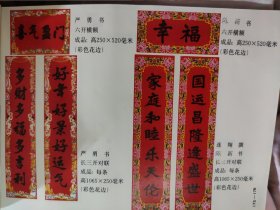 喜气盈门
严勇 书
六开横额
成品:高250×520毫米
(彩色花边)
好年好景好运气
多财多福多吉利
严勇 书
长三开对联
成品:每条
高1065×250毫米
(彩色花边)
幸福
书
六开横额
成品:高250×520毫米
(彩色花边)
国运昌隆逢盛世
家庭和睦乐天伦
撰
书
长三开对联
成品:每条
高1065×250毫米
(彩色花边)